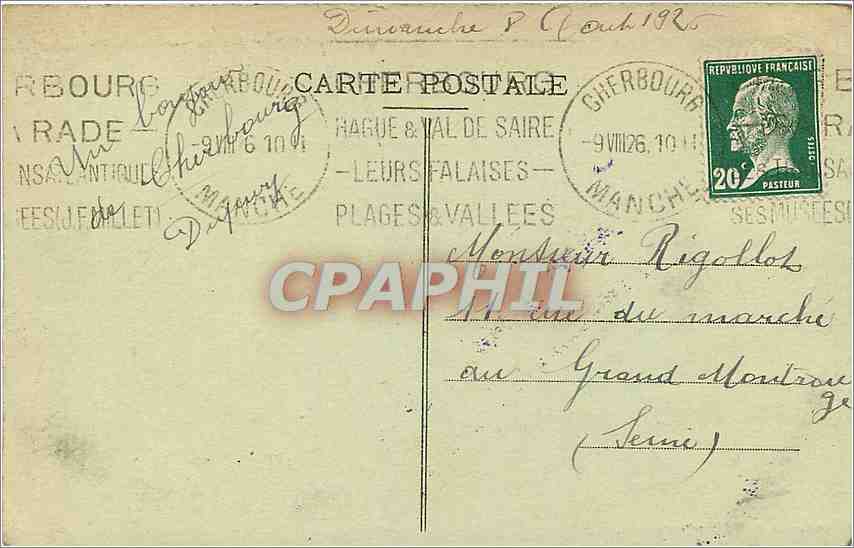 Dimanche 8 Aout 1926
CARTE POSTALE
RBOURG
RADE
NSATLANTIQUE
EES (J.F. MILLET)
CHERBOURG
-9 VIII 26 10
MANCHE
CHERBOURG
HAGUE & VAL DE SAIRE
-LEURS FALAISES-
PLAGES & VALLEES
CHERBOURG
-9 VIII 26. 10
MANCHE
SES MUSÉES (
REPVBLIQVE FRANÇAISE
POSTES
20c
PASTEUR
Un bonjour
de Cherbourg
Monsieur Rigollot
11 rue du marché
au Grand Montrou
ge
(Seine)
CPAPHIL